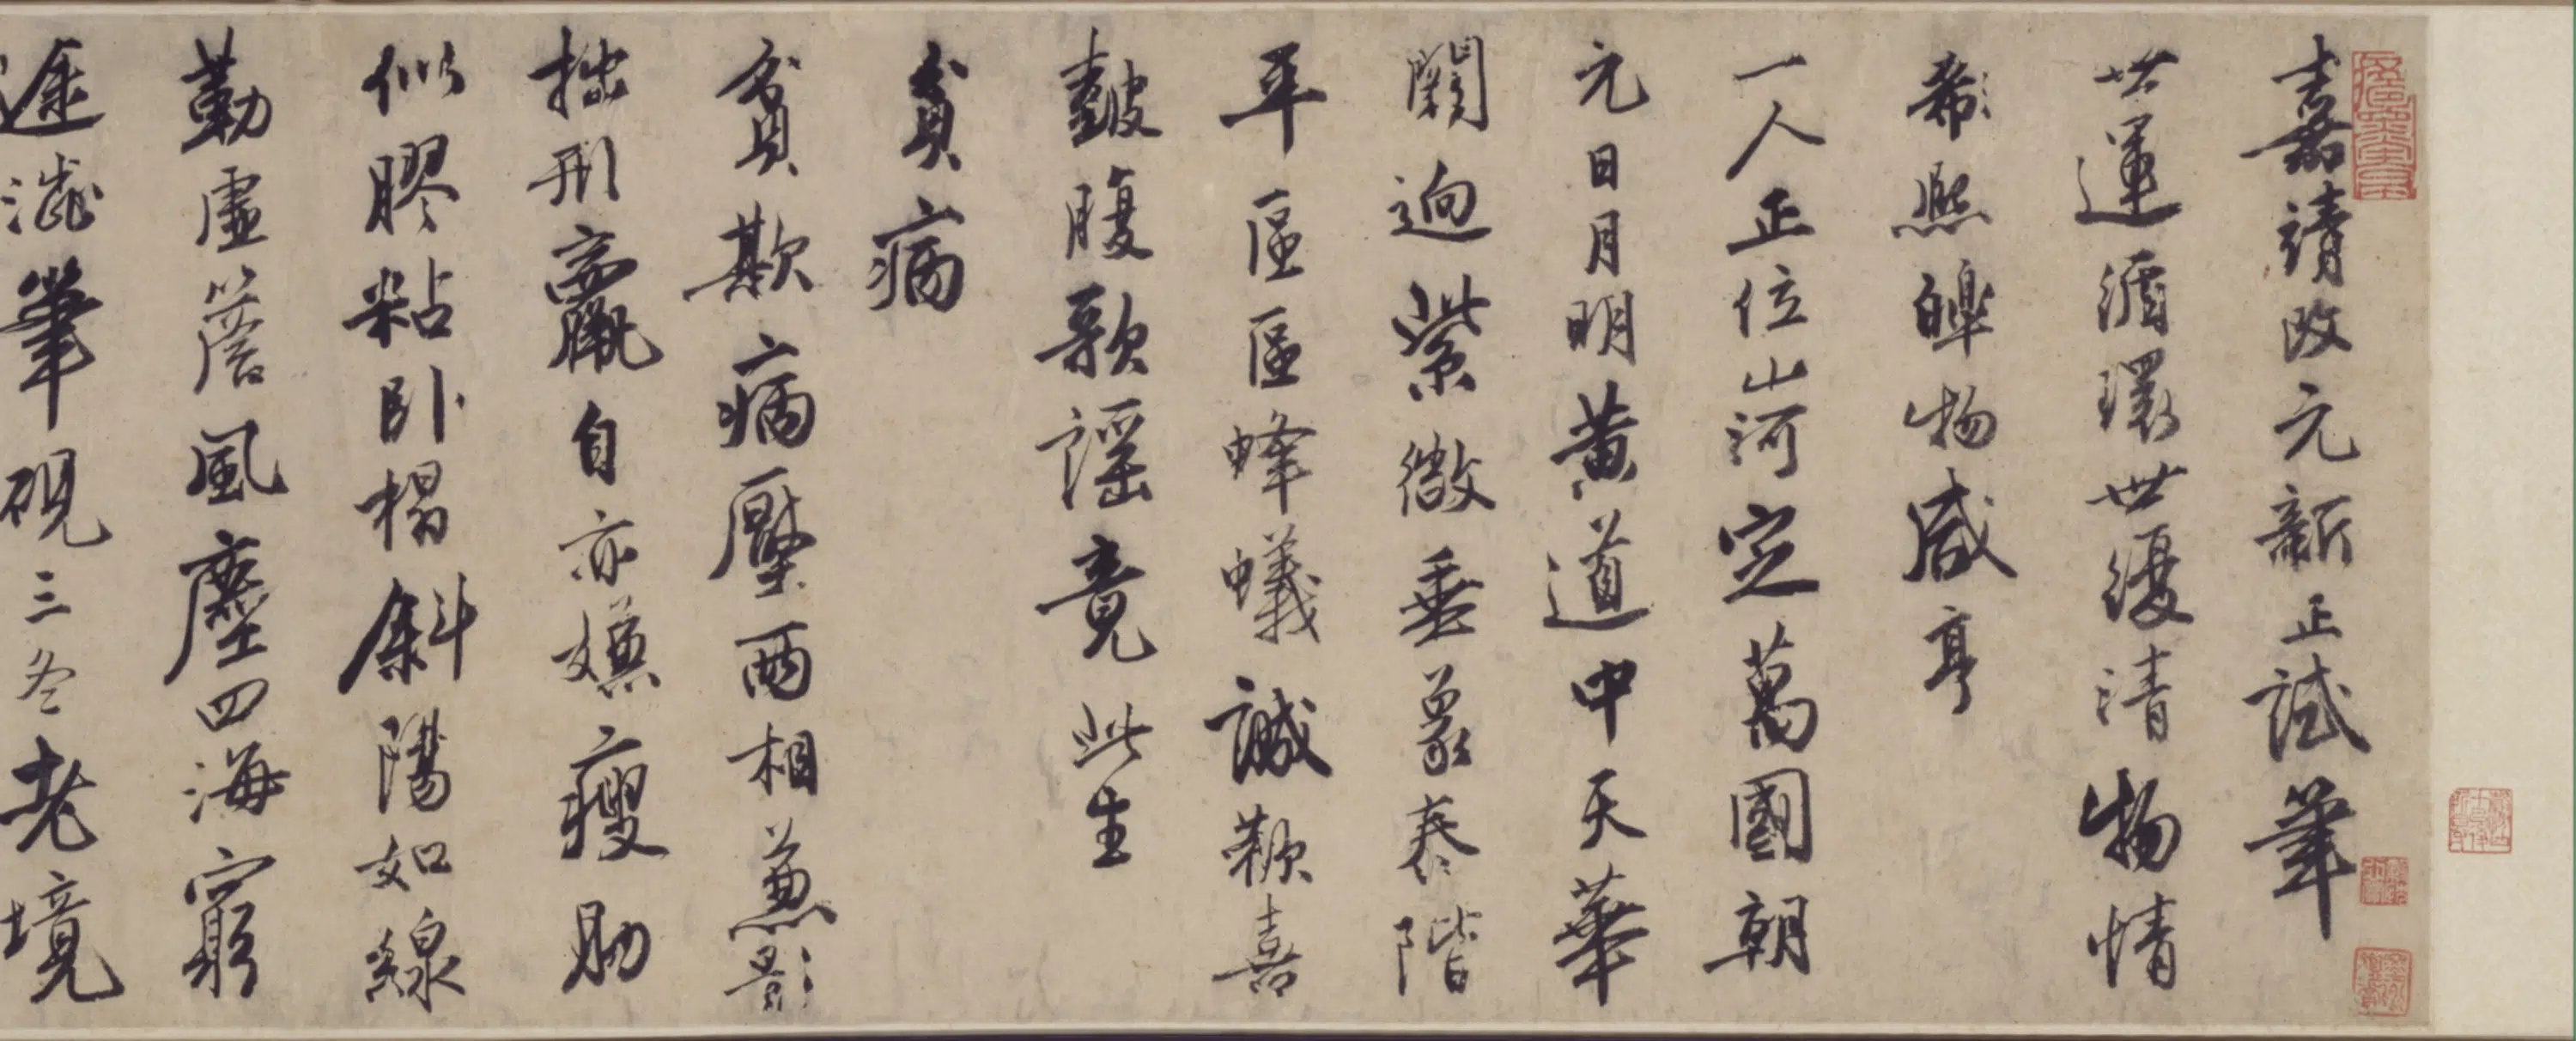 嘉靖改元新正試筆
世運循環世復清物情
希熙皞物咸亨
一人正位山河定萬國朝
元日月明黃道中天華
闕迥紫微垂象泰階
平區區蜂蟻誠歡喜
鼓腹歌謠竟此生
貧病
貧欺病壓兩相兼影
拙形羸自亦嫌瘦肋
似膠粘臥榻斜陽如線
勤虛簷風塵四海窮
途澁筆硯三冬老境